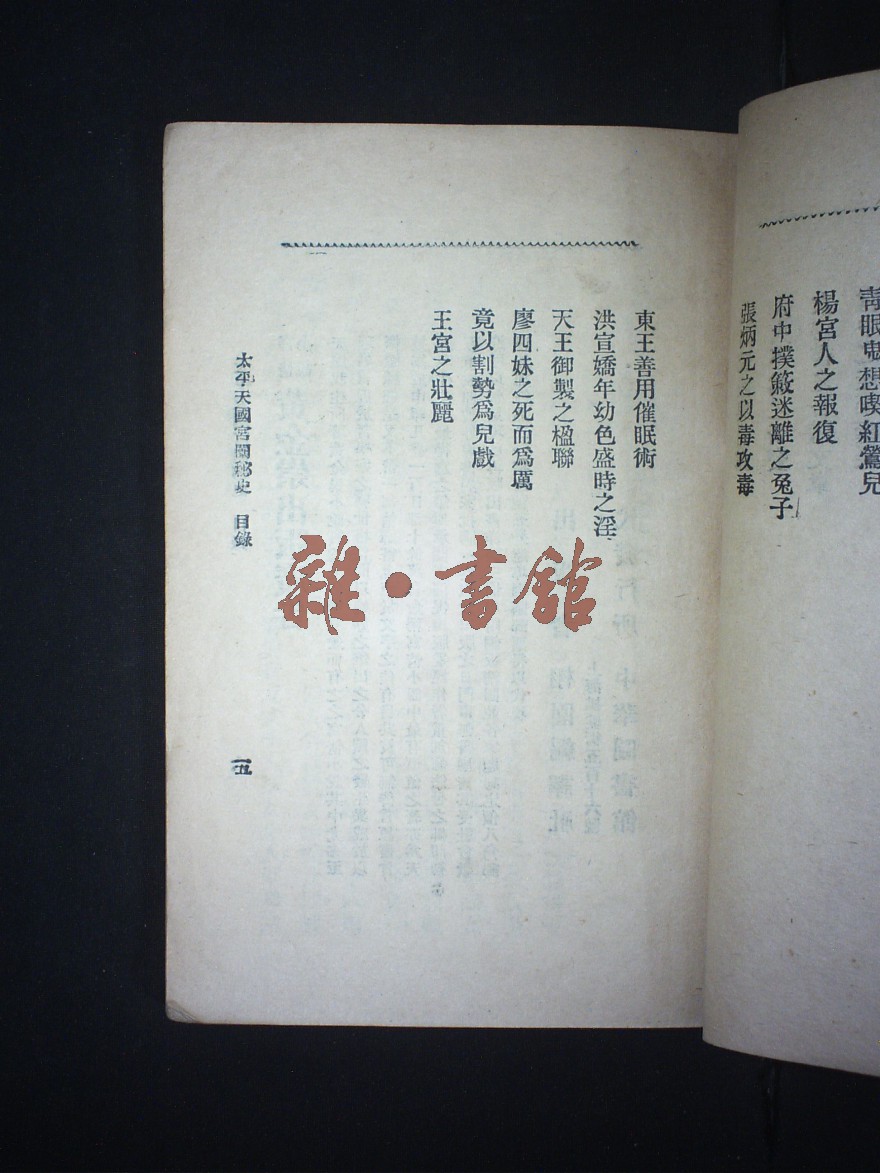 青眼鬼想喫紅鶯兒
楊宮人之報復
府中撲簌迷離之兔子
張炳元之以毒攻毒
東王善用催眠術
洪宣嬌年幼色盛時之淫
天王御製之楹聯
廖四妹之死而為厲
竟以割勢為兒戲
王宮之壯麗
太平天國宮闈秘史 目錄
一五
雜·書館